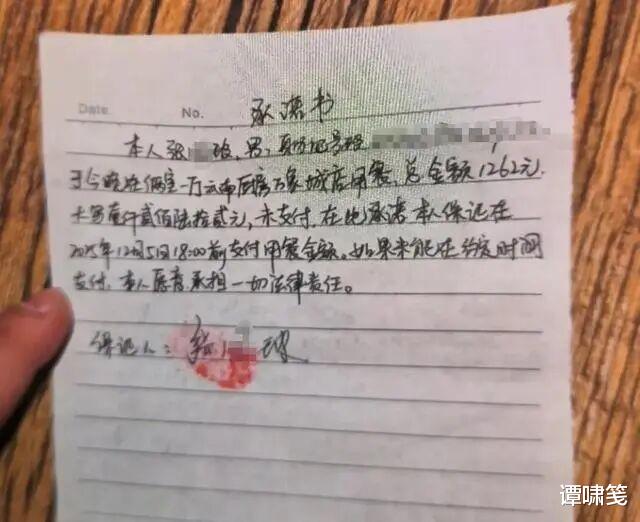 Date. No. 承诺书
本人张 球,男,身份证号码
于今晚在俩 一 万云南 万象城店用餐,总金额1262元.
大写壹仟贰佰陆拾贰元,未支付.在此承诺本人保证在
2025年12月5日18:00前支付用餐金额。如果未能在约定时间
支付,本人愿意承担一切法律责任。
保证人:张 球
谭啸笺